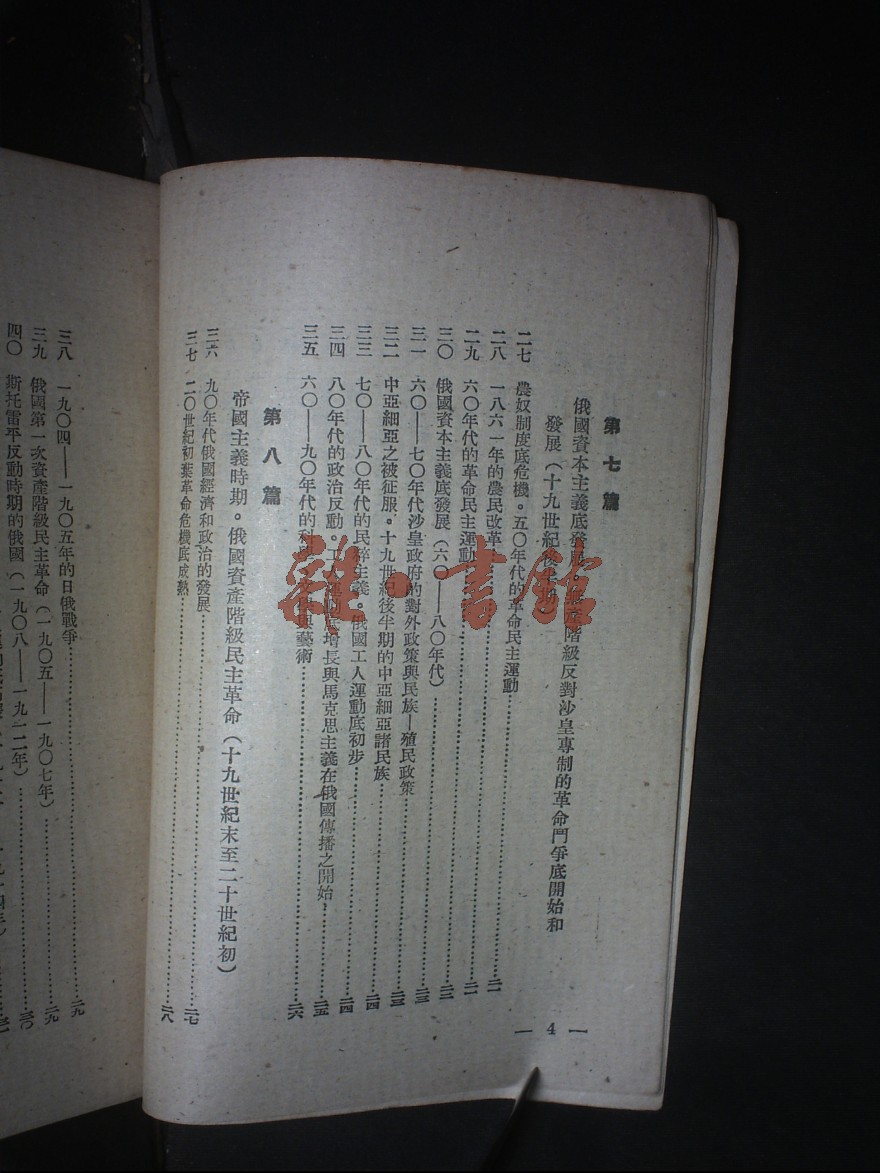 第七篇
俄國資本主義底發展。無產階級反對沙皇專制的革命鬥爭底開始和
發展(十九世紀後半期)
二七 農奴制度底危機。五〇年代的革命民主運動……二一
二八 一八六一年的農民改革……二一
二九 六〇年代的革命民主運動……二一
三〇 俄國資本主義底發展(六〇——八〇年代)……二二
三一 六〇——七〇年代沙皇政府的對外政策與民族—殖民政策……二三
三二 中亞細亞之被征服。十九世紀後半期的中亞細亞諸民族……二三
三三 七〇——八〇年代的民粹主義。俄國工人運動底初步……二四
三四 八〇年代的政治反動。工人運動底增長與馬克思主義在俄國傳播之開始……二五
三五 六〇——九〇年代的科學、文學與藝術……二六
第八篇
帝國主義時期。俄國資產階級民主革命(十九世紀末至二十世紀初)
三六 九〇年代俄國經濟和政治的發展……二七
三七 二〇世紀初葉革命危機底成熟……二八
— 4 —
三八 一九〇四——一九〇五年的日俄戰爭……二九
三九 俄國第一次資產階級民主革命(一九〇五——一九〇七年)……二九
四〇 斯托雷平反動時期的俄國(一九〇八——一九一二年)……三〇
雜·書館